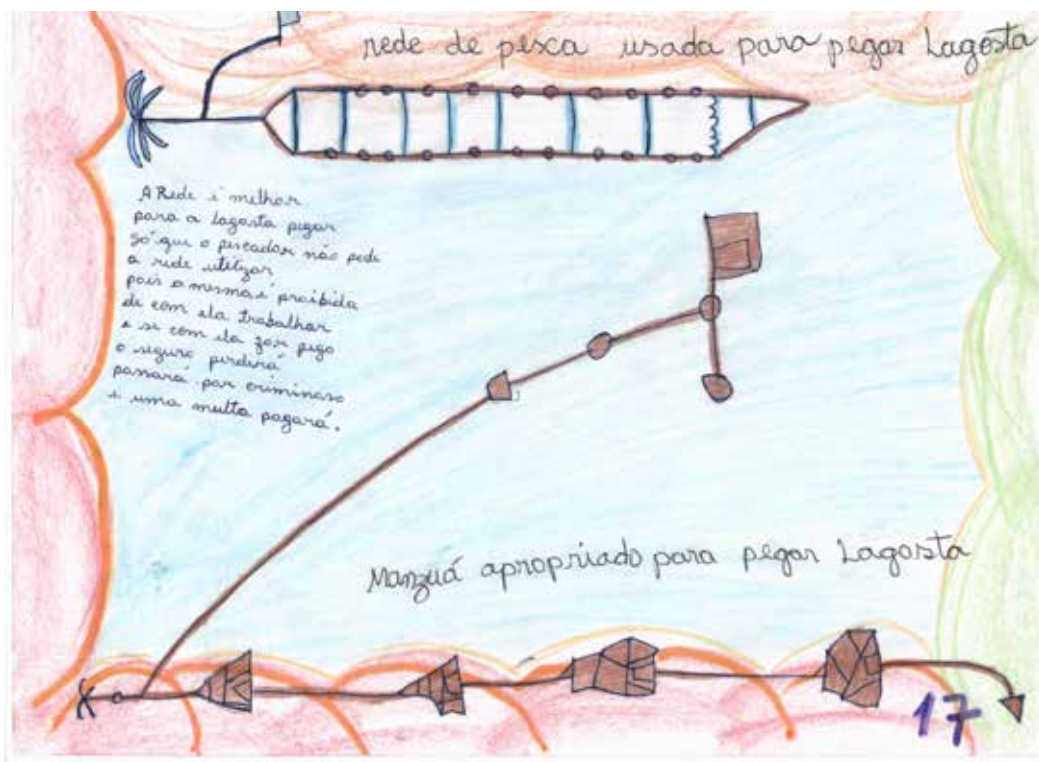 rede de pesca usada para pegar Lagosta
A Rede é melhor
para a lagosta pegar
só que o pescador não pode
a rede utilizar
pois a mesma é proibida
de com ela trabalhar
e se com ela for pego
o seguro perderá
passará por criminoso
e uma multa pagará.
Manzuá apropriado para pegar Lagosta
17